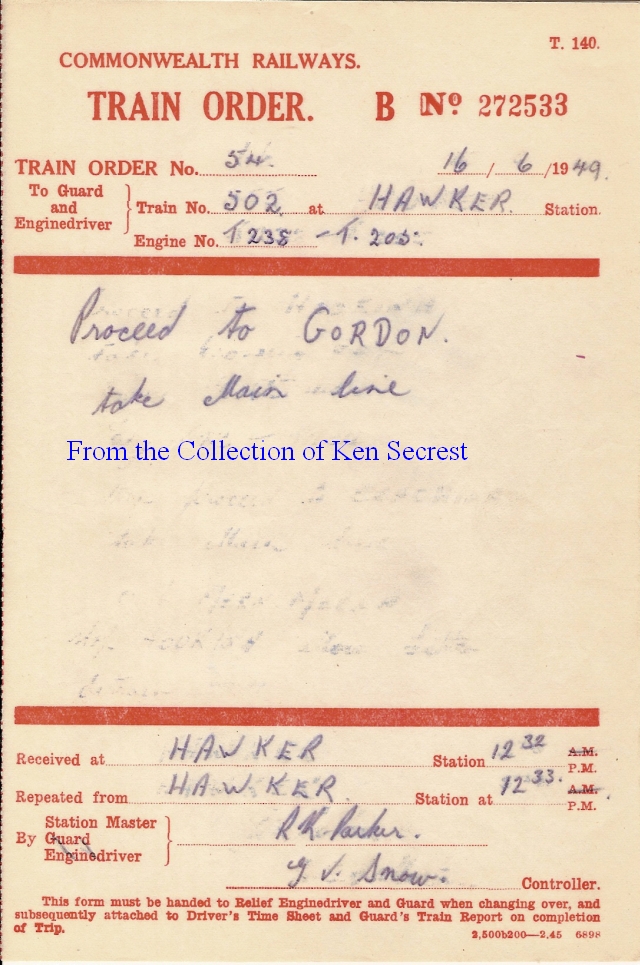 T. 140.
COMMONWEALTH RAILWAYS.
TRAIN ORDER. B No 272533
TRAIN ORDER No. 54. 16 / 6 /1949.
To Guard and Enginedriver
Train No. 502 at HAWKER. Station.
Engine No. T 238 - T. 205.
Proceed to GORDON.
take Main line
From the Collection of Ken Secrest
Received at HAWKER Station 12 32 A.M. P.M.
Repeated from HAWKER. Station at 12 33. A.M. P.M.
By Station Master Guard Enginedriver
R K Parker.
G. V. Snow. Controller.
This form must be handed to Relief Enginedriver and Guard when changing over, and
subsequently attached to Driver's Time Sheet and Guard's Train Report on completion
of Trip.
2,500b200—2.45 6898